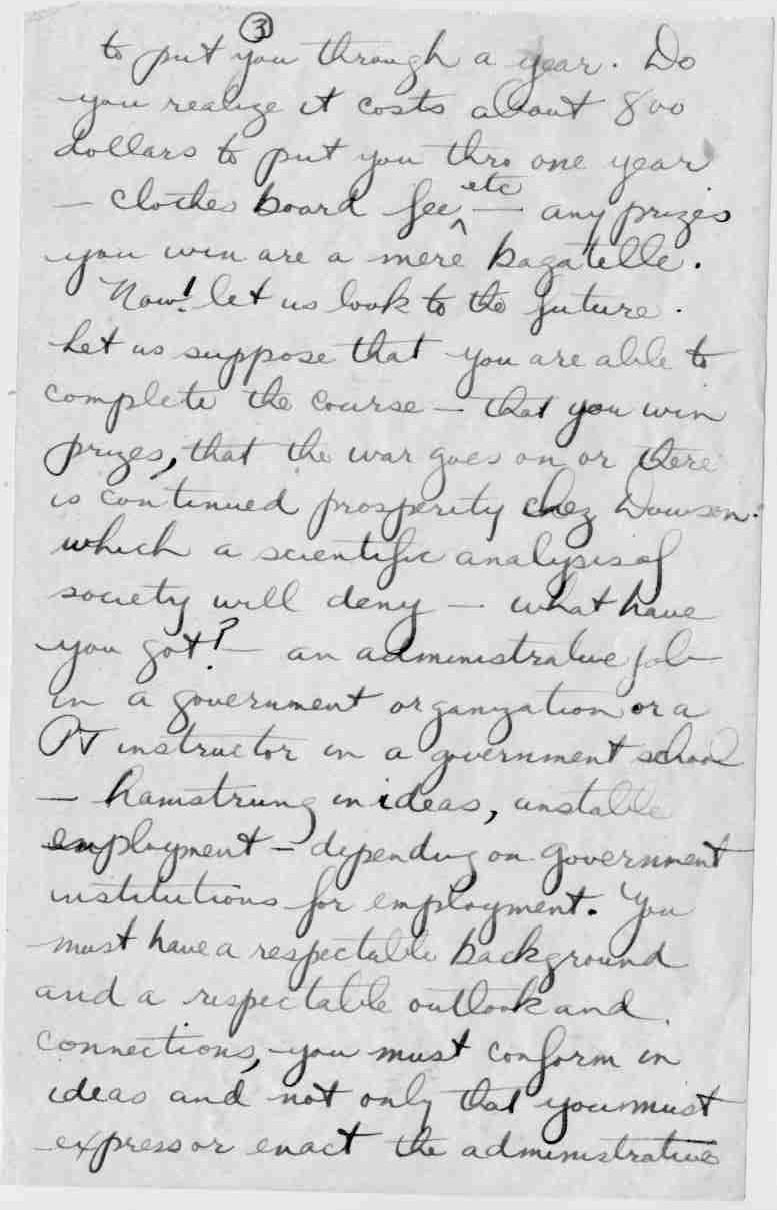 3
to put you through a year. Do
you realize it costs about 800
dollars to put you thro one year
— clothes board fee, etc — any prizes
you win are a mere bagatelle.
Now! let us look to the future.
Let us suppose that you are able to
complete the course — that you win
prizes, that the war goes on or there
is continued prosperity chez Dawson.
which a scientific analysis of
society will deny — what have
you got? — an administrative job
in a government organization or a
PT instructor in a government school
— hamstrung in ideas, unstable
employment — depending on government
institutions for employment. You
must have a respectable background
and a respectable outlook and
connections, you must conform in
ideas and not only that you must
express or enact the administrative